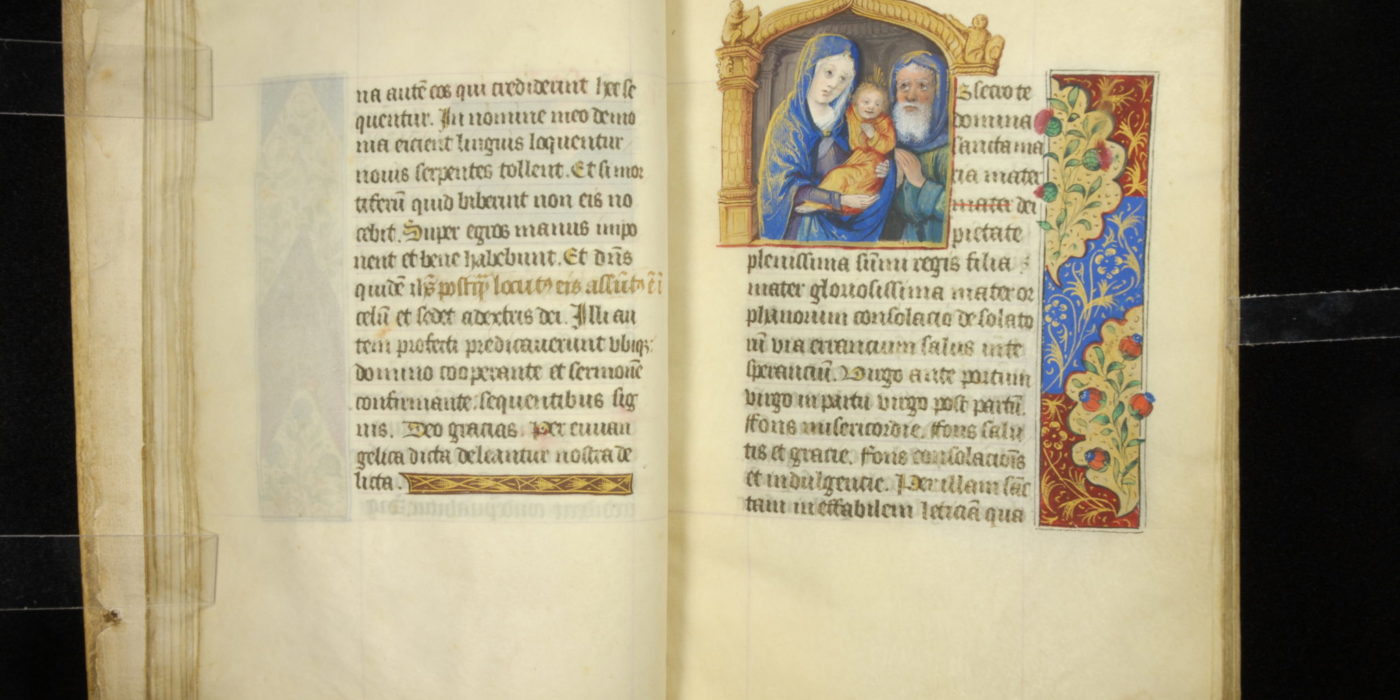 na autē eos qui crediderint hec se
quentur. In nomine meo demo
nia eicient linguis loquentur
nouis serpentes tollent. Et si mor
tiferū quid biberint non eis no
cebit. Super egros manus inpo
nent et bene habebunt. Et dn̄s
quidē ih̄s postq̄ȝ locutꝰ eis assūtꝰ ē ī
celū et sedet adextris dei. Illi au
tem profecti predicauerunt vbiqȝ
domino cooperante et sermonē
confirmante. sequentibus sig
nis. Deo gracias. Per euuan
gelica dicta deleantur nostra de
licta.
Obsecro te
domina
sancta ma
ria mater
mata dei
pietate
plenissima sūmi regis filia
mater gloriosissima mater or
phanorum consolacio desolato
rū via errancium salus in te
speranciū. Virgo ante partum
virgo in partu virgo post partū.
ffons misericordie. ffons salu
tis et gracie. ffons consolacionīs
et indulgencie. Per illam sāc
tam in effabilem leticiā qua